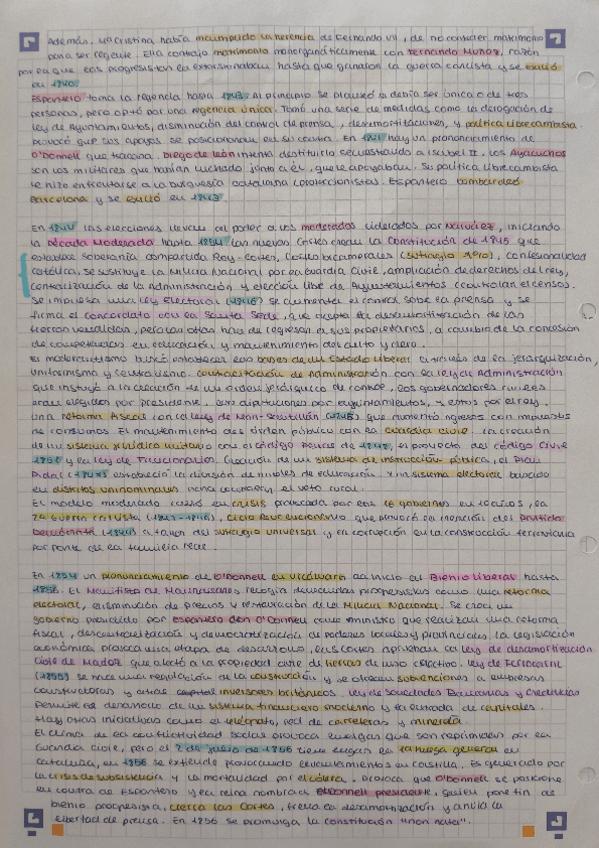 Además, Mª Cristina había incumplido la herencia de Fernando VII, de no contraer matrimonio
para ser regente. Ella contrajo matrimonio morganáticamente con Fernando Muñoz, razón
por la que los progresistas la extorsionaban hasta que ganaron la guerra carlista y se exilió
en 1840.
Espartero toma la regencia hasta 1843. Al principio se planteó si debía ser única o de tres
personas, pero optó por una regencia única. Tomó una serie de medidas como la derogación de
ley de Ayuntamientos, disminución del control de prensa, desamortizaciones, y política librecambista
provocó que sus apoyos se posicionaran en su contra. En 1841 hay un pronunciamiento de
O'Donnell que fracasa. Diego de León intenta destituirlo secuestrando a Isabel II. Los Ayacuchos
son los militares que habían luchado junto a él, que le apoyaban. Su política librecambista
le hizo enfrentarse a la burguesía catalana (proteccionistas). Espartero bombardeó
Barcelona y se exilió en 1843.
En 1844 las elecciones llevan al poder a los moderados liderados por Narváez, iniciando
la Década Moderada hasta 1854. Las nuevas Cortes crean la Constitución de 1845 que
establece soberanía compartida Rey-Cortes, Cortes bicamerales (sufragio), confesionalidad
católica, se sustituye la Milicia Nacional por la Guardia Civil, ampliación de derechos del rey,
centralización de la Administración y elección libre de Ayuntamientos (controlan el censo).
Se impulsa una ley electoral (1846) se aumenta el control sobre la prensa y se
firma el concordato con la Santa Sede, que acepta la desamortización de las
tierras vendidas, pero las otras han de regresar a sus propietarios, a cambio de la concesión
de competencias en educación y mantenimiento del culto y clero.
El moderantismo buscó establecer las bases de un Estado liberal a través de la jerarquización,
uniformismo y centralismo. Centralización de Administración con la ley de Administración
que instituyó a la creación de un orden jerárquico de control, los gobernadores civiles
eran elegidos por presidente. Las diputaciones por ayuntamientos, y estos por el rey.
Una reforma fiscal con la ley de Mon-Santillán (1845) que aumentó ingresos con impuestos
de consumos. El mantenimiento del orden público con la Guardia Civil. La creación
de un sistema jurídico unitario con el código Penal de 1848, el proyecto del código Civil
1851 y la ley de Funcionarios. Creación de un sistema de instrucción pública, el Plan
Pidal (1845) establecía la división de niveles de educación. Y un sistema electoral basado
en distritos uninominales el voto rural.
El modelo moderado en crisis provocada por los 16 gobiernos en 10 años, la
2ª Guerra Carlista, ciclo Revolucionario que provocó la creación del Partido
Demócrata a favor del sufragio universal y la corrupción en la construcción ferroviaria
por parte de la familia real.
En 1854 un pronunciamiento de O'Donnell en Vicálvaro da inicio al Bienio Liberal hasta
1856. El Manifiesto de Manzanares recogía demandas progresistas como una reforma
electoral, disminución de precios y restauración de la Milicia Nacional. Se crea un
gobierno presidido por Espartero con O'Donnell como ministro que realizan una reforma
fiscal, descentralización y democratización de poderes locales y provinciales. La legislación
económica provoca una etapa de desarrollo, las Cortes aprueban la ley de desamortización
Civil de Madoz que afectó a la propiedad civil de tierras de uso colectivo. Ley de Ferrocarril
(1855) se hace una regulación de la construcción y se ofrecen subvenciones a empresas
constructoras y atrae inversores británicos. Ley de Sociedades Bancarias y Crediticias
permite el desarrollo de un sistema financiero moderno y la entrada de capitales.
Hay otras iniciativas como el telégrafo, red de carreteras y minería.
El clima de la conflictividad social provoca huelgas que son reprimidas por la
Guardia Civil, pero el 2 de julio de 1856 tiene lugar la huelga general en
Cataluña, en 1856 se extiende provocando levantamientos en Castilla. Es generado por
la crisis de subsistencia y la mortalidad por el cólera. Provoca que O'Donnell se posicione
en contra de Espartero y la reina nombrará O'Donnell presidente, quien pone fin al
bienio progresista, cierra las Cortes, frena la desamortización y anula la
libertad de prensa. En 1856 se promulga la constitución "non nata".